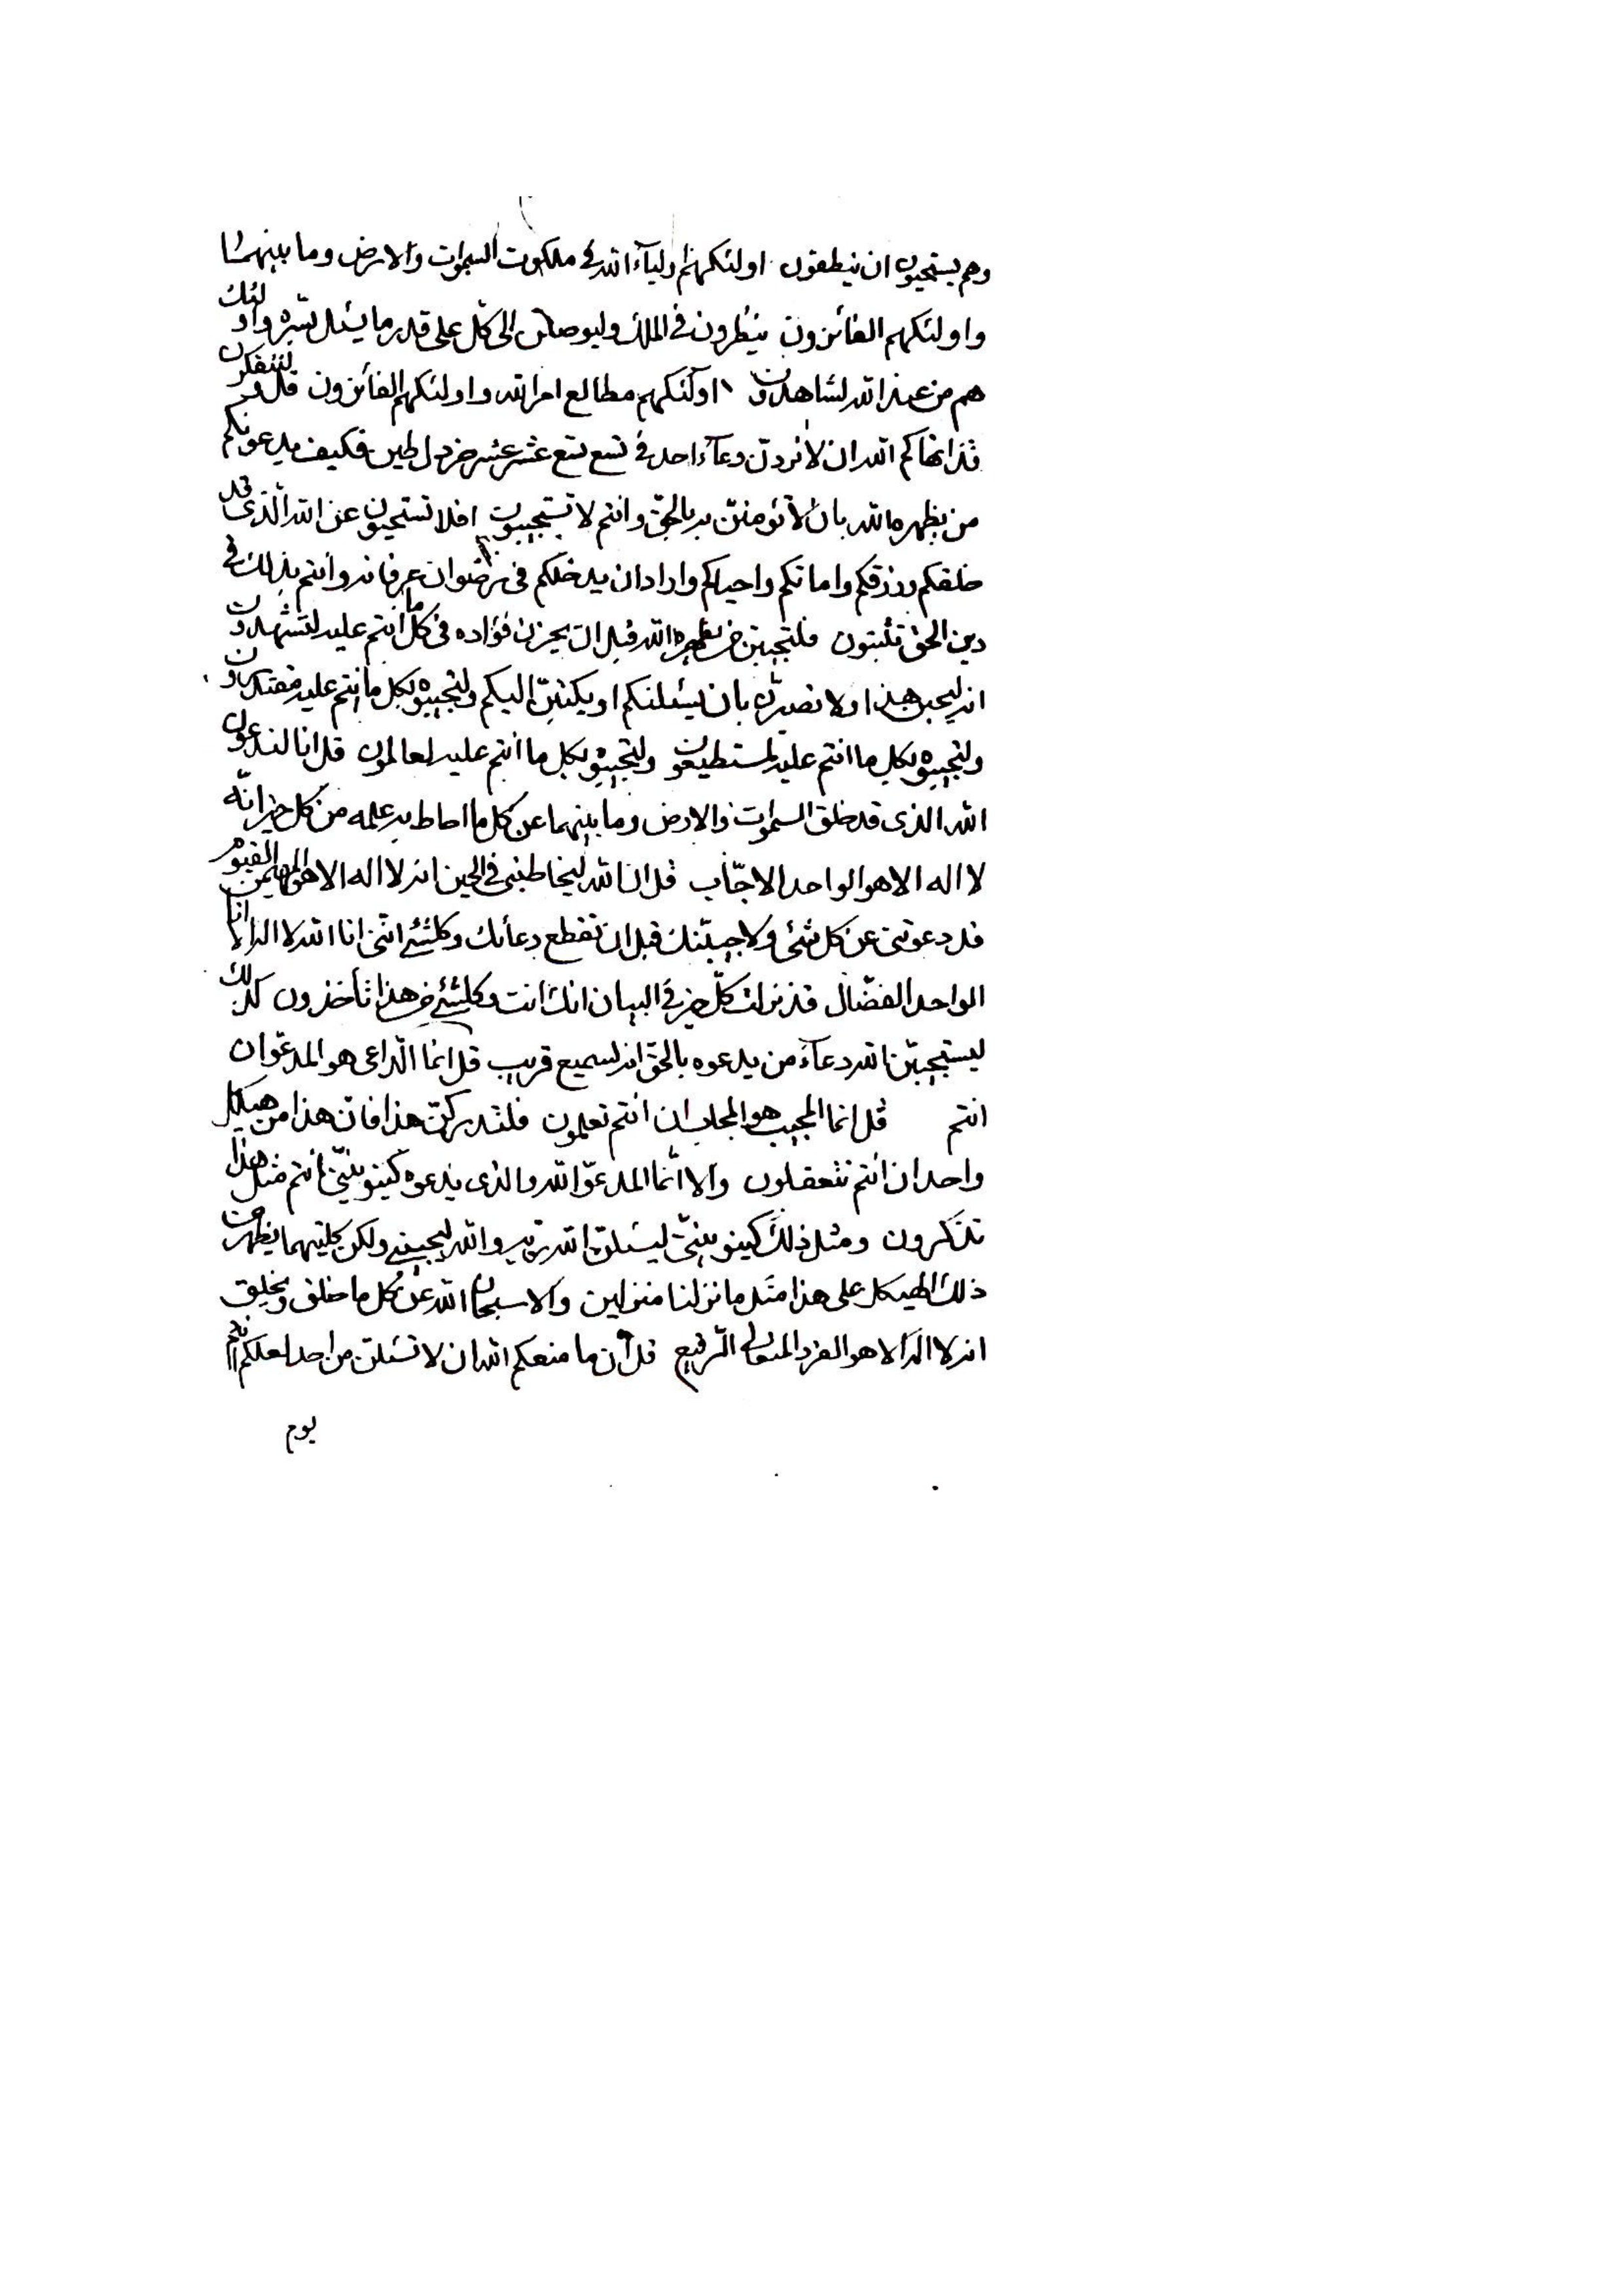 وهم يستحيون ان ينطقون اولئكهم اولياء الله في ملكوت السموات والارض وما بينهما
واولئكهم الفائزون ينظرون في الملك وليوصلن الى كل على قدر ما يسئل بسره واولئك
هم من عند الله لشاهدون اولئكهم مطالع امر الله واولئكهم الفائزون قل لتتفكرون
قد انهاكم الله ان لا تردن دعاء احد في تسع تسع عشر عشر خردل طين فكيف يدعونكم
من يظهره الله بان لا تؤمنن به بالحق وانتم لا تستجيبون افلا تستحيون عن الله الذي قد
خلقكم ورزقكم واماتكم واحياكم واراد ان يدخلكم في رضوان عرفانه وانتم بذلك في
دين الحق تثبتون فلتجيبن من يظهره الله قبل ان يحزن فؤاده في كل ما انتم عليه لتشهدون
انه ليحبن هذا ولا تصبرن بان يسئلنكم او يكتبن اليكم ولتجيبوه بكل ما انتم عليه مقتدرون
ولتجيبوه بكل ما انتم عليه لمستطيعون ولتجيبوه بكل ما انتم عليه لعالمون قل انا لندعون
الله الذي قد خلق السموات والارض وما بينهما عن كل ما احاط به علمه من كل خير انه
لا اله الا هو الواحد الاجاب قل ان الله ليخاطبني في الحين انه لا اله الا هو المهيمن القيوم
قد دعوتني عن كل شئ ولاجيبنك قبل ان تقطع دعائك وكلشئ انني انا الله لا اله الا انا
الواحد الفضال قد نزلت كل خير في البيان انك انت وكلشئ من هذا تأخذون كذلك
ليستجيبن الله دعاء من يدعوه بالحق انه لسميع قريب قل انما الداعي هو المدعو ان
انتم قل انما المجيب هو المجاب ان انتم تعلمون فلتدركن هذا فان هذا من هيكل
واحد ان انتم تتعقلون والا انما المدعو الله والذي يدعوه كينونيتي انتم مثل هذا
تذكرون ومثل ذلك كينونيتي ليسئلن الله ربه والله ليجيبني ولكن كليتهما يظهرن من
ذلك الهيكل على هذا مثل ما نزلنا منزلين والا سبحان الله عن كل ما خلق ويخلق
انه لا اله الا هو الفرد المتعالي الرفيع قل ان ما منعكم الله ان لا تسئلن من احد لعلكم انتم
يوم